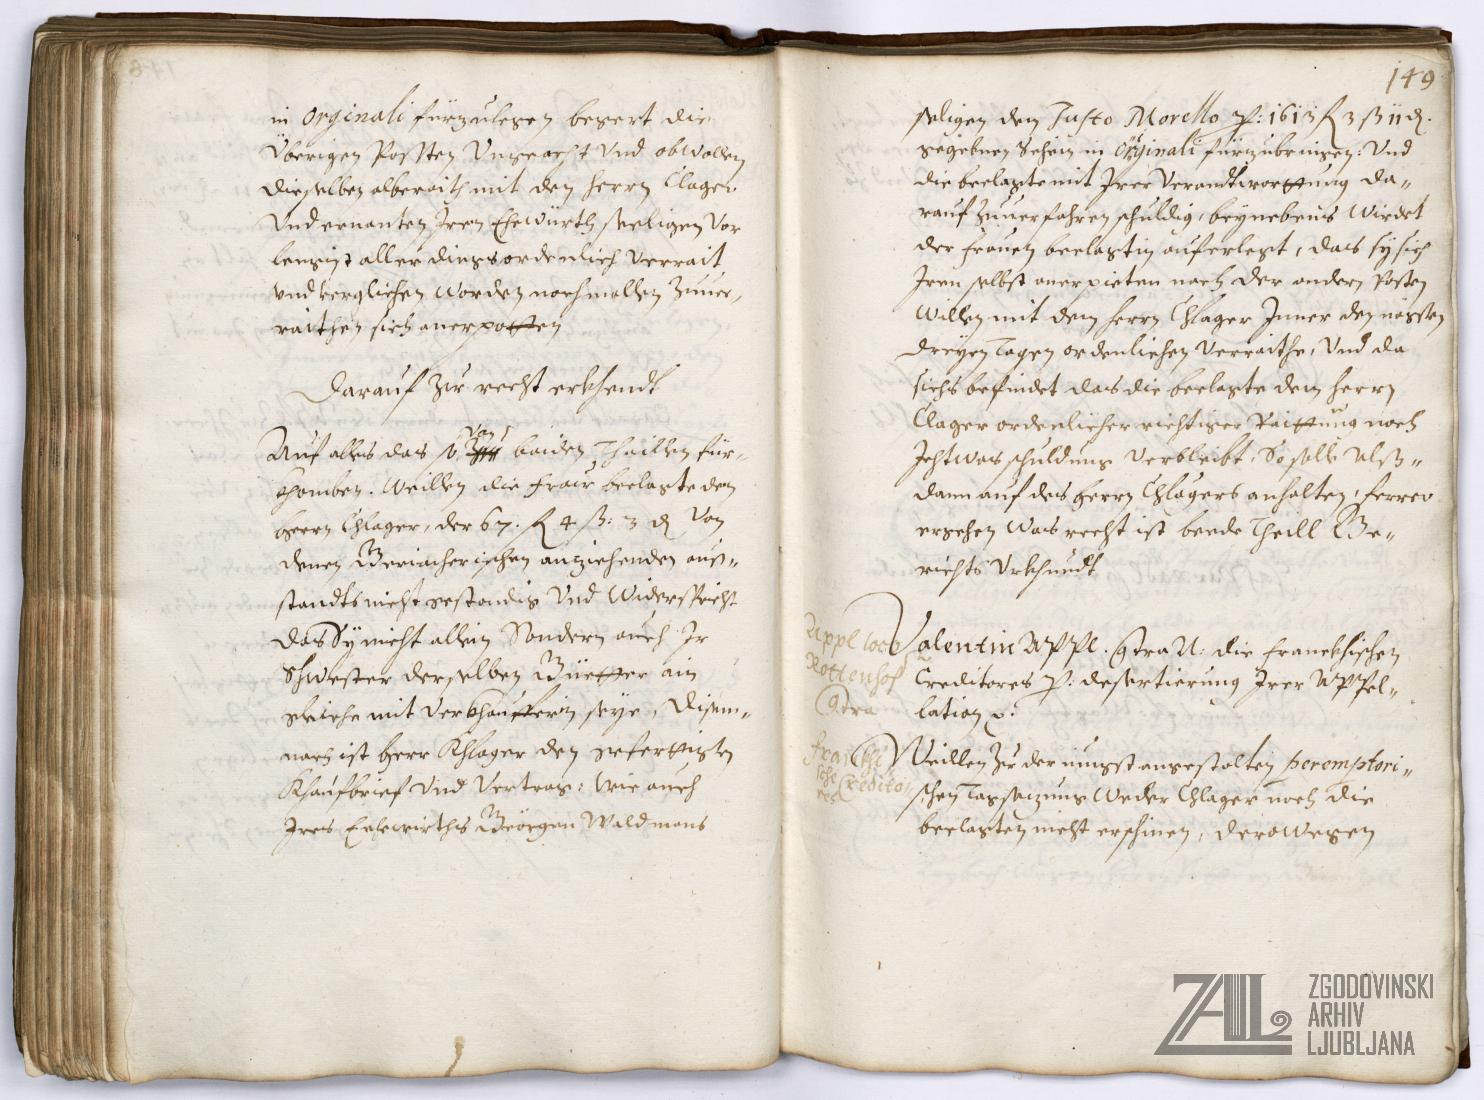 in orginali fürzulegen begert die
Überigen Possten Ungeacht Und obwollen
dieselben alberaith mit dem herrn Clager
Und ernanten Irem Ehewürth seeligen Vor
lengist aller dings ordenlich verrait
vnd verglichen worden nochmallen Zuuer-
raithen sich anerpotten
Darauf zu recht erkhendt
Auf alles das so von baiden Thaillen für-
khomben. Weillen die Fraw beclagte dem
herrn Chlager, der 67. f 4 ß: 3 d Von
denen anziehenden aus-
standts nicht gestendig Und Widerspricht
das Sy nicht allein Sondern auch Ir
Schwester derselben Güetter ain
gleiche mit Verkhaufferin seye, Disem-
nach ist herr Khlager den gefertigten
Khaufbrief Und Vertrag: wie auch
Ires Ehewirths Geörgen Waldmans
149
seligen dem Justo Morello p: 1613 f 3 ß 11 d.
gegebnen Schein in orginali fürzubringen: Und
die beclagte mit Irer Verandtworttung da-
rauf Zuuerfahren schuldig, beynebens Wirdet
der Frauen beclagtin auferlegt, das sy sich
Irem selbst anerpieten nach der andern Posten
Willen mit dem herrn Chlager Inner den negsten
dreyen Tagen ordenlichen Verraithe, Und da
sichs befindet das die beclagte dem herrn
Clager ordenlicher richtiger Raittung nach
Ichtwas schuldung Verbleibt. So solle Alß-
dann auf des herrn Chlagers anhalten, ferrer
ergehen Was recht ist beede Theill Ge-
richts Urkhundt
Appl loco
Rottenhof
Contra
franckhi
sche Credito-
res
Valentin Appl. Contra N: die Franckhischen
Creditores p: desertierung Irer Appel-
lation p:
Weillen Zu der iungst angestalten peremptori-
schen Tagsazung Weder Chlager noch die
beclagten nicht erschinen, derowegen
ZAL
ZGODOVINSKI
ARHIV
LJUBLJANA